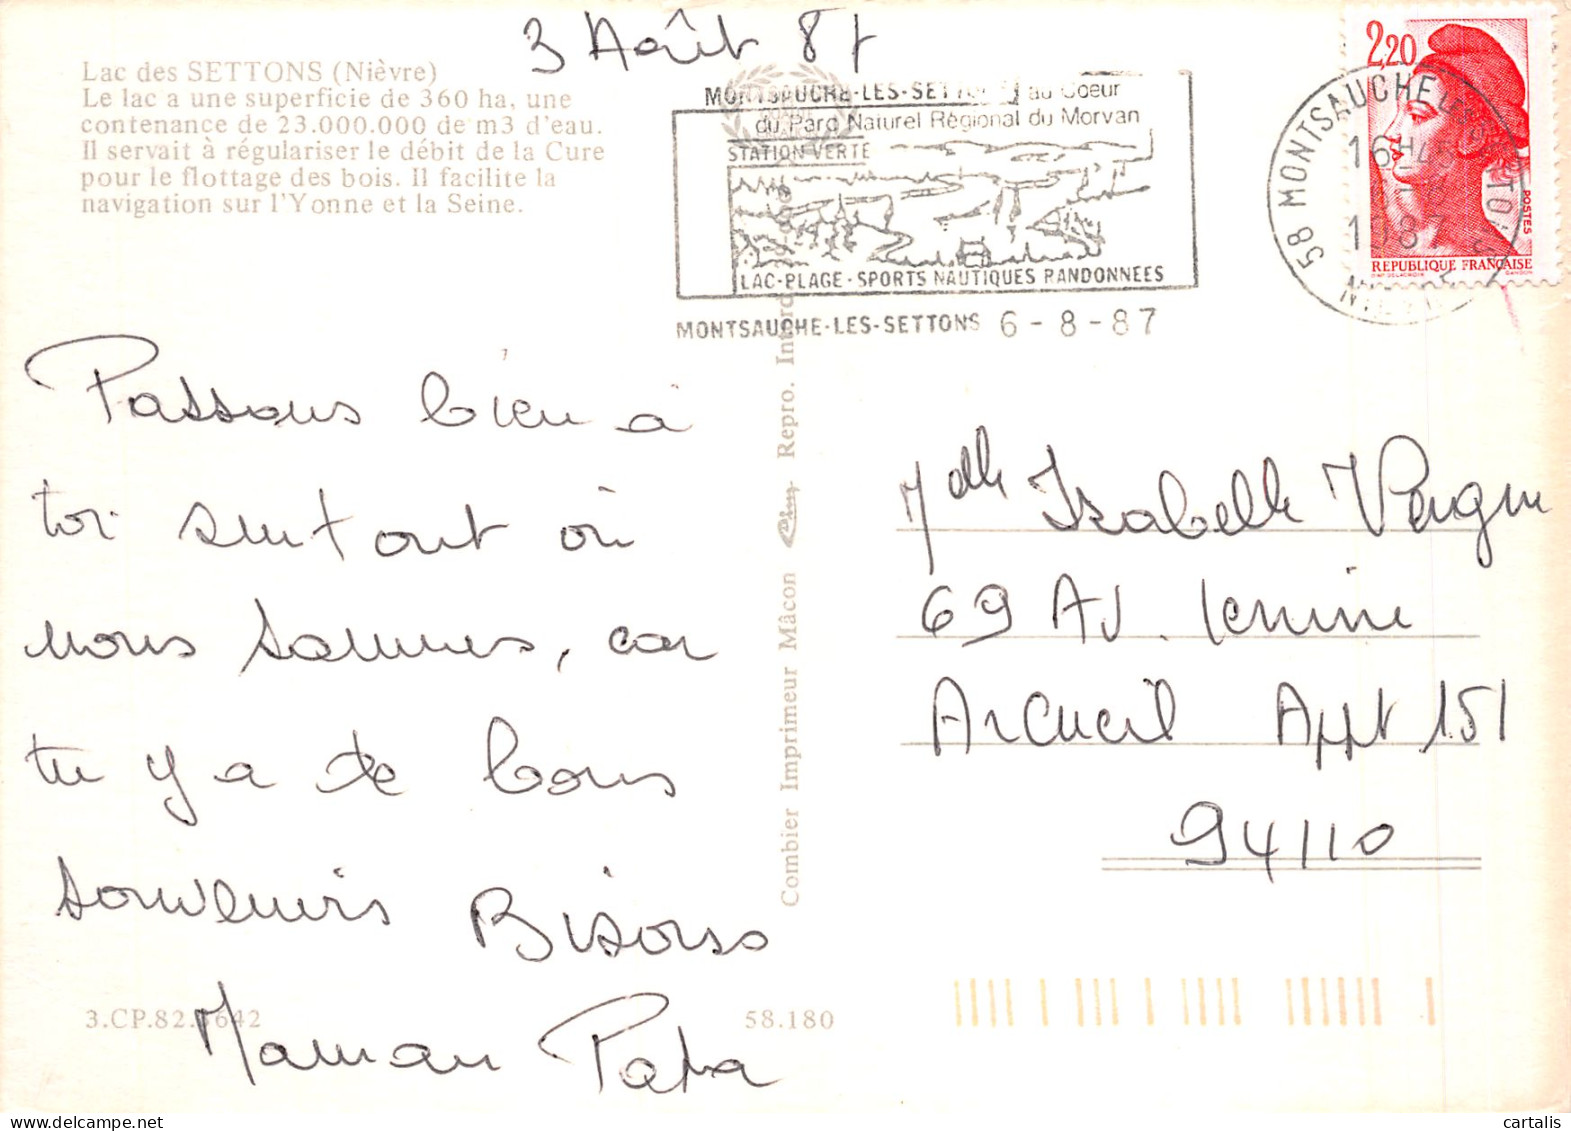 3 Août 87
Lac des SETTONS (Nièvre)
Le lac a une superficie de 360 ha, une
contenance de 23.000.000 de m3 d'eau.
Il servait à régulariser le débit de la Cure
pour le flottage des bois. Il facilite la
navigation sur l'Yonne et la Seine.
MONTSAUCHE-LES-SETTONS au Coeur
du Parc Naturel Régional du Morvan
STATION VERTE
LAC-PLAGE-SPORTS NAUTIQUES RANDONNEES
MONTSAUCHE-LES-SETTONS 6-8-87
58 MONTSAUCHE LES SETTONS
16H45
1987
2,20
POSTES
REPUBLIQUE FRANÇAISE
Passons bien à
toi surtout où
nous sommes, car
tu y a de bons
souvenirs Bisous
Maman Papa
Combier Imprimeur Mâcon Repro. Interd.
Mdlle Isabelle
69 Av. Lenine
Arcueil Appt 151
94110
3.CP.82. 642
58.180
cartalis